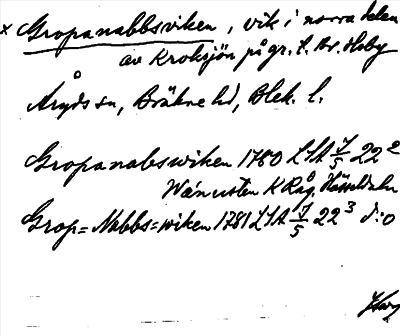 x Gropanabbsviken, vik i norra delen
av Kroksjön på gr. t. Br. Hoby
Åryds sn, Bräkne hd, Blek. l.
Gropanabswiken 1780 LSA 7/5 22²
Wänersten K Råg. Hässeldala
Grop=Nabbs=wiken 1781 LSA 7/5 22³ d:o